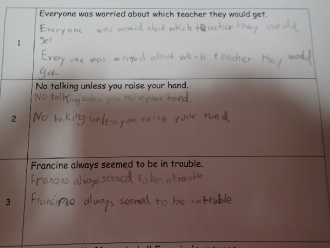 Everyone was worried about which teacher they would get.
Everyone was worried about which teacher they would
get
1
Every one was worried about which teacher they would
get
No talking unless you raise your hand.
No talking unless you raise your hand.
2
No talking unless you raise your
Francine always seemed to be in trouble.
always seemed to be
3
Francine always seemed to be in truble